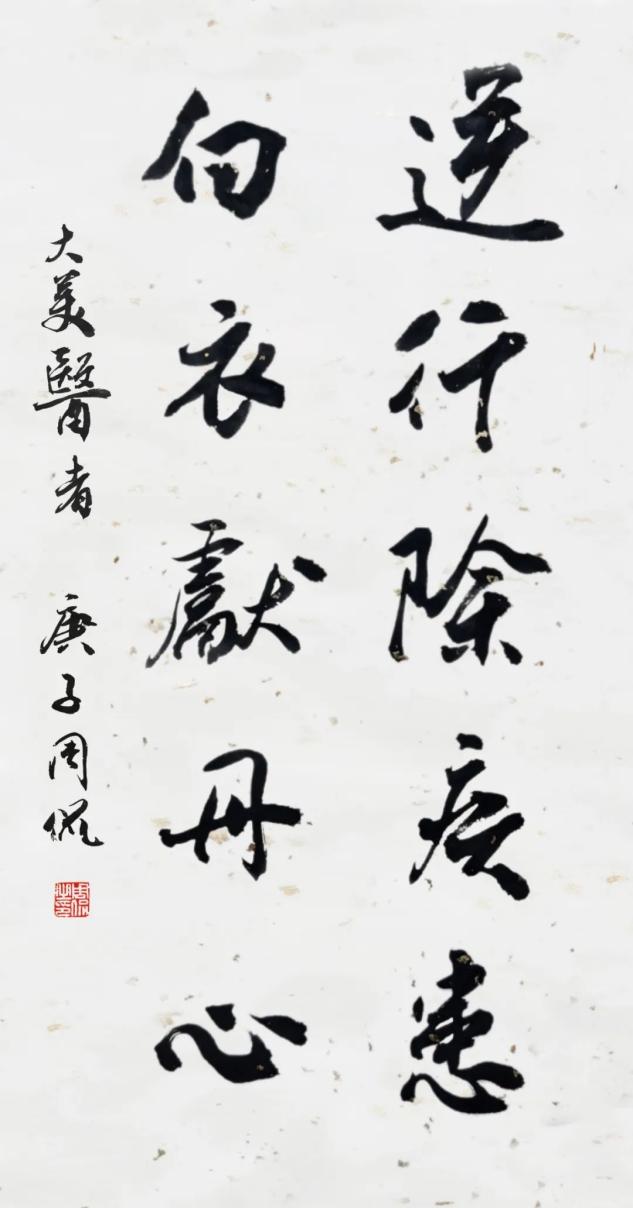 逆行除疾患
白衣獻丹心
大美醫者 庚子周侃